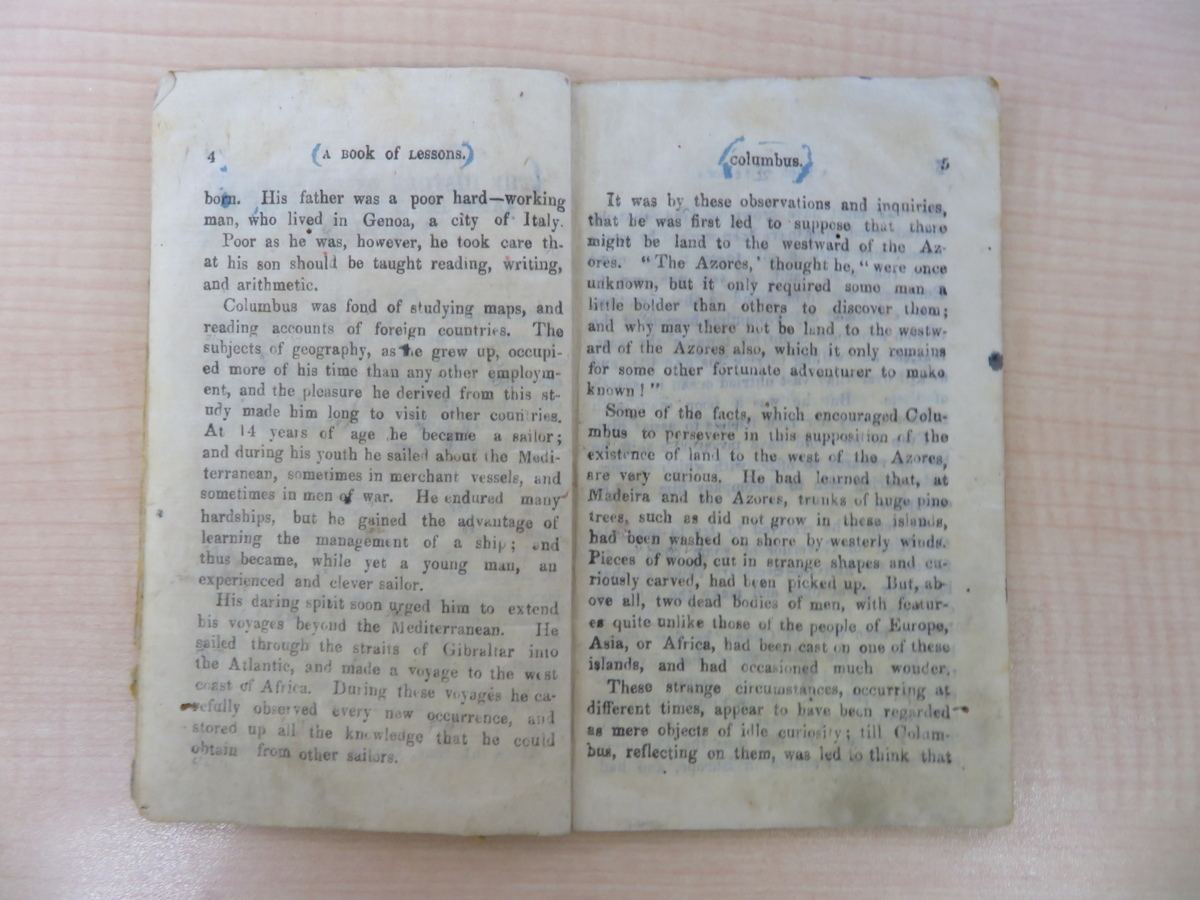 4 (A BOOK of LESSONS.)
born. His father was a poor hard—working
man, who lived in Genoa, a city of Italy.
Poor as he was, however, he took care th-
at his son should be taught reading, writing,
and arithmetic.
Columbus was fond of studying maps, and
reading accounts of foreign countries. The
subjects of geography, as he grew up, occupi-
ed more of his time than any other employm-
ent, and the pleasure he derived from this st-
udy made him long to visit other countries.
At 14 years of age he became a sailor;
and during his youth he sailed about the Medi-
terranean, sometimes in merchant vessels, and
sometimes in men of war. He endured many
hardships, but he gained the advantage of
learning the management of a ship; and
thus became, while yet a young man, an
experienced and clever sailor.
His daring spitit soon urged him to extend
his voyages beyond the Mediterranean. He
sailed through the straits of Gibraltar into
the Atlantic, and made a voyage to the west
coast of Africa. During these voyages he ca-
refully observed every new occurrence, and
stored up all the knowledge that he could
obtain from other sailors.
(Columbus.) 5
It was by these observations and inquiries,
that he was first led to suppose that there
might be land to the westward of the Az-
ores. "The Azores,' thought he, "were once
unknown, but it only required some man a
little bolder than others to discover them;
and why may there not be land to the westw-
ard of the Azores also, which it only remains
for some other fortunate adventurer to make
known!"
Some of the facts, which encouraged Colu-
mbus to persevere in this supposition of the
existence of land to the west of the Azores,
are very curious. He had learned that, at
Madeira and the Azores, trunks of huge pine
trees, such as did not grow in these islands,
had been washed on shore by westerly winds.
Pieces of wood, cut in strange shapes and cu-
riously carved, had been picked up. But, ab-
ove all, two dead bodies of men, with featur-
es quite unlike those of the people of Europe,
Asia, or Africa, had been cast on one of these
islands, and had occasioned much wonder.
These strange circumstances, occurring at
different times, appear to have been regarded
as mere objects of idle curiosity; till Colum-
bus, reflecting on them, was led to think that